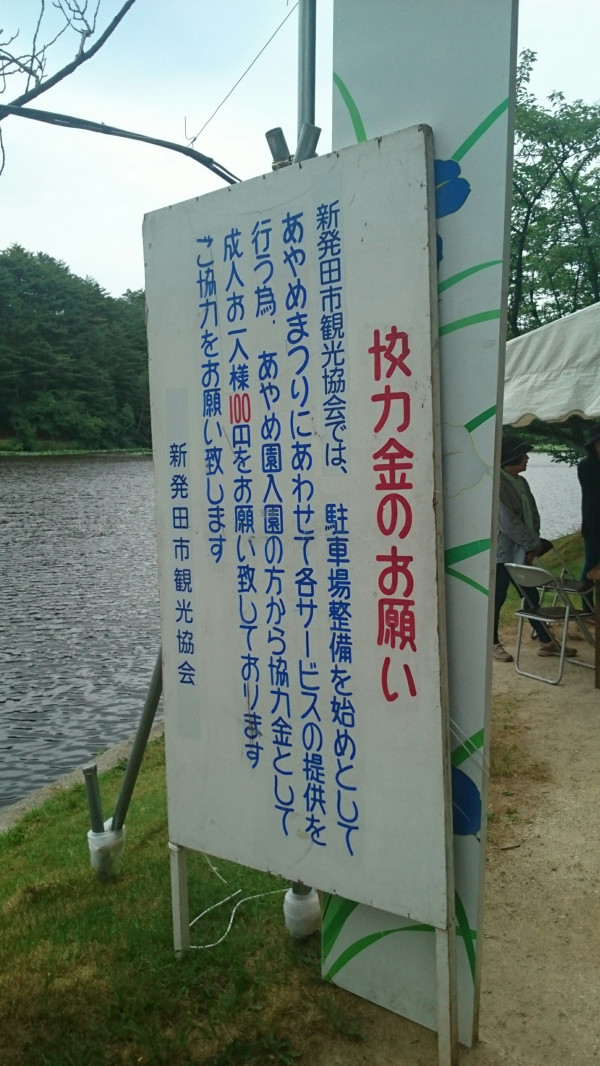 協力金のお願い
新発田市観光協会では、駐車場整備を始めとして
あやめまつりにあわせて各サービスの提供を
行う為、あやめ園入園の方から協力金として
成人お一人様100円をお願い致しております
ご協力をお願い致します
新発田市観光協会